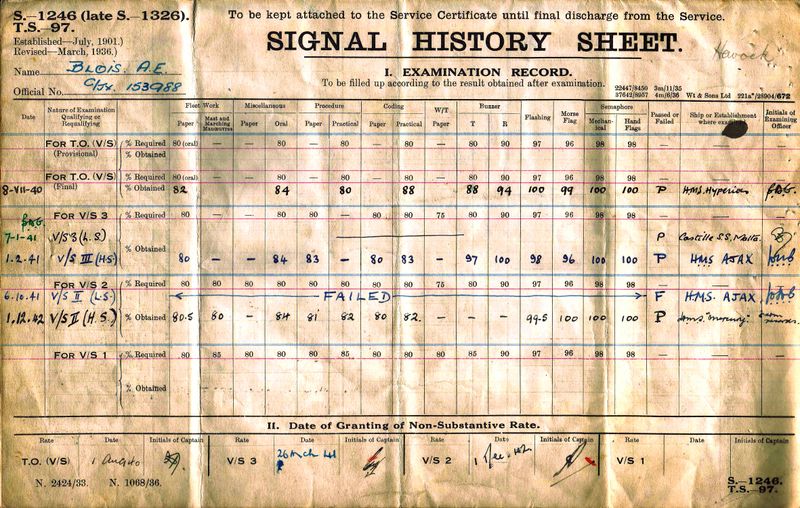 S.—1246 (late S.—1326).
T.S.—97.
Established—July, 1901.)
Revised—March, 1936.)
To be kept attached to the Service Certificate until final discharge from the Service.
SIGNAL HISTORY SHEET.
Havock
Name BLOIS. A.E.
Official No. C/JX. 153988
I. EXAMINATION RECORD.
To be filled up according to the result obtained after examination.
22447/8450 3m/11/35
37642/8957 4m/6/36 Wt & Sons Ltd 221a*/28904/672
Date Nature of Examination Qualifying or Requalifying Fleet Work Miscellaneous Procedure Coding W/T Buzzer Flashing Morse Flag Semaphore Passed or Failed Ship or Establishment where examined Initials of Examining Officer
Paper Mast and Marching Manœuvres Paper Oral Paper Practical Paper Practical Paper T R Mechanical Hand Flags
FOR T.O. (V/S) (Provisional) % Required 80 (oral) — — 80 — 80 — 80 — 80 90 97 96 98 98 — — —
% Obtained
FOR T.O. (V/S) (Final) % Required 80 (oral) — — 80 — 80 — 80 — 80 90 97 96 98 98 — — —
8-VII-40 % Obtained 82 84 80 88 88 94 100 99 100 100 P HMS. Hyperion
FOR V/S 3 % Required 80 — — 80 80 — 80 80 75 80 90 97 96 98 98 — — —
7-1-41 V/S 3 (L.S.) P Castille S.S. Malta.
% Obtained
1.2.41 V/S III (H.S.) 80 — — 84 83 — 80 83 — 97 100 98 96 100 100 P HMS AJAX
FOR V/S 2 % Required 80 80 80 80 80 80 80 80 75 80 90 97 96 98 98 — — —
6.10.41 V/S II (L.S.) FAILED F H.M.S. AJAX
1.12.42 V/S II (H.S.) % Obtained 80.5 80 — 84 81 82 80 82. — — — 99.5 100 100 100 P H.M.S. "Mercury"
FOR V/S 1 % Required 80 85 80 80 80 85 80 80 80 85 90 97 96 98 98 — — —
% Obtained
II. Date of Granting of Non-Substantive Rate.
Rate Date Initials of Captain Rate Date Initials of Captain Rate Date Initials of Captain Rate Date Initials of Captain
T.O. (V/S) 1 Aug 40 V/S 3 26 Mch 41 V/S 2 1 Dec 42 V/S 1
N. 2424/33. N. 1068/36.
S.—1246.
T.S.—97.